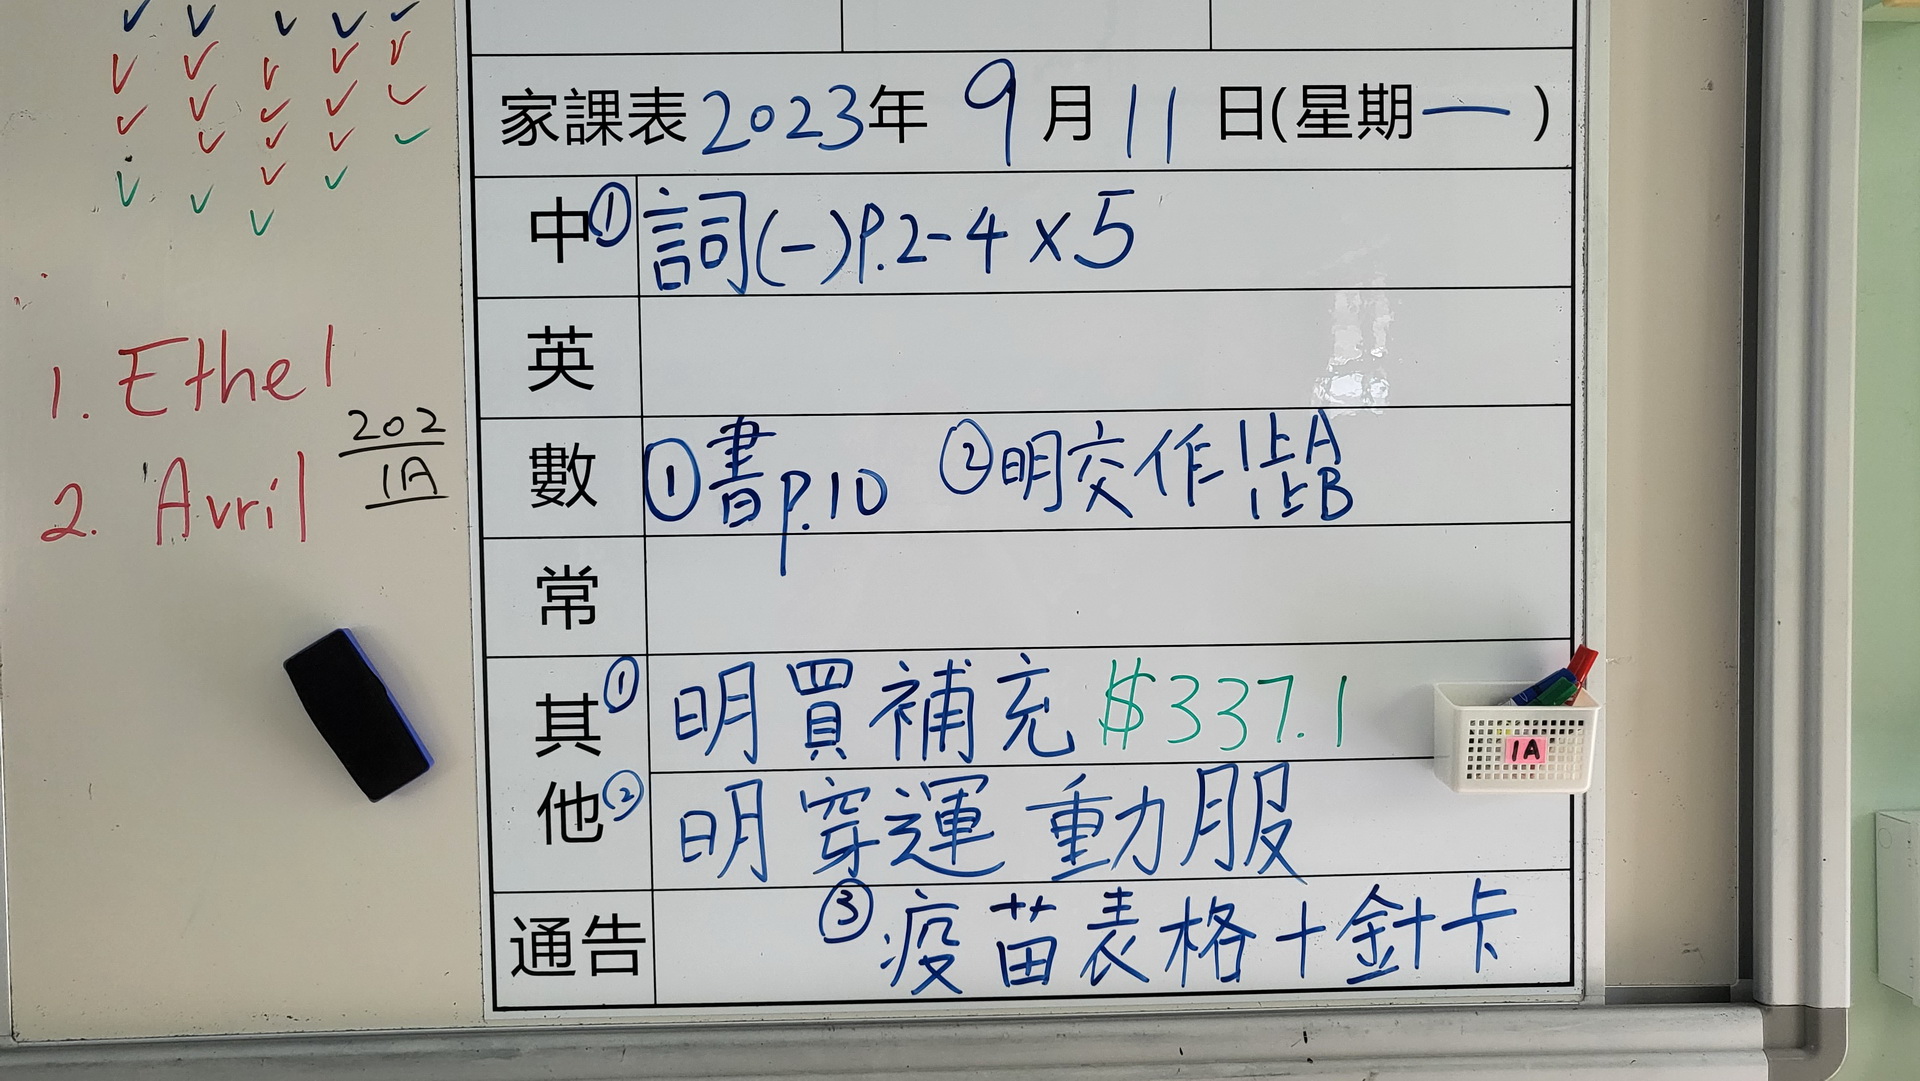 家課表2023年 9月11日(星期一)
中① 詞(一)P.2-4 x5
英
數 ①書p.10 ②明交作1上A
1上B
常
其① 明買補充 $337.1
他② 明穿運動服
通告 ③疫苗表格+針卡
1. Ethel
2. Avril
202
1A
1A